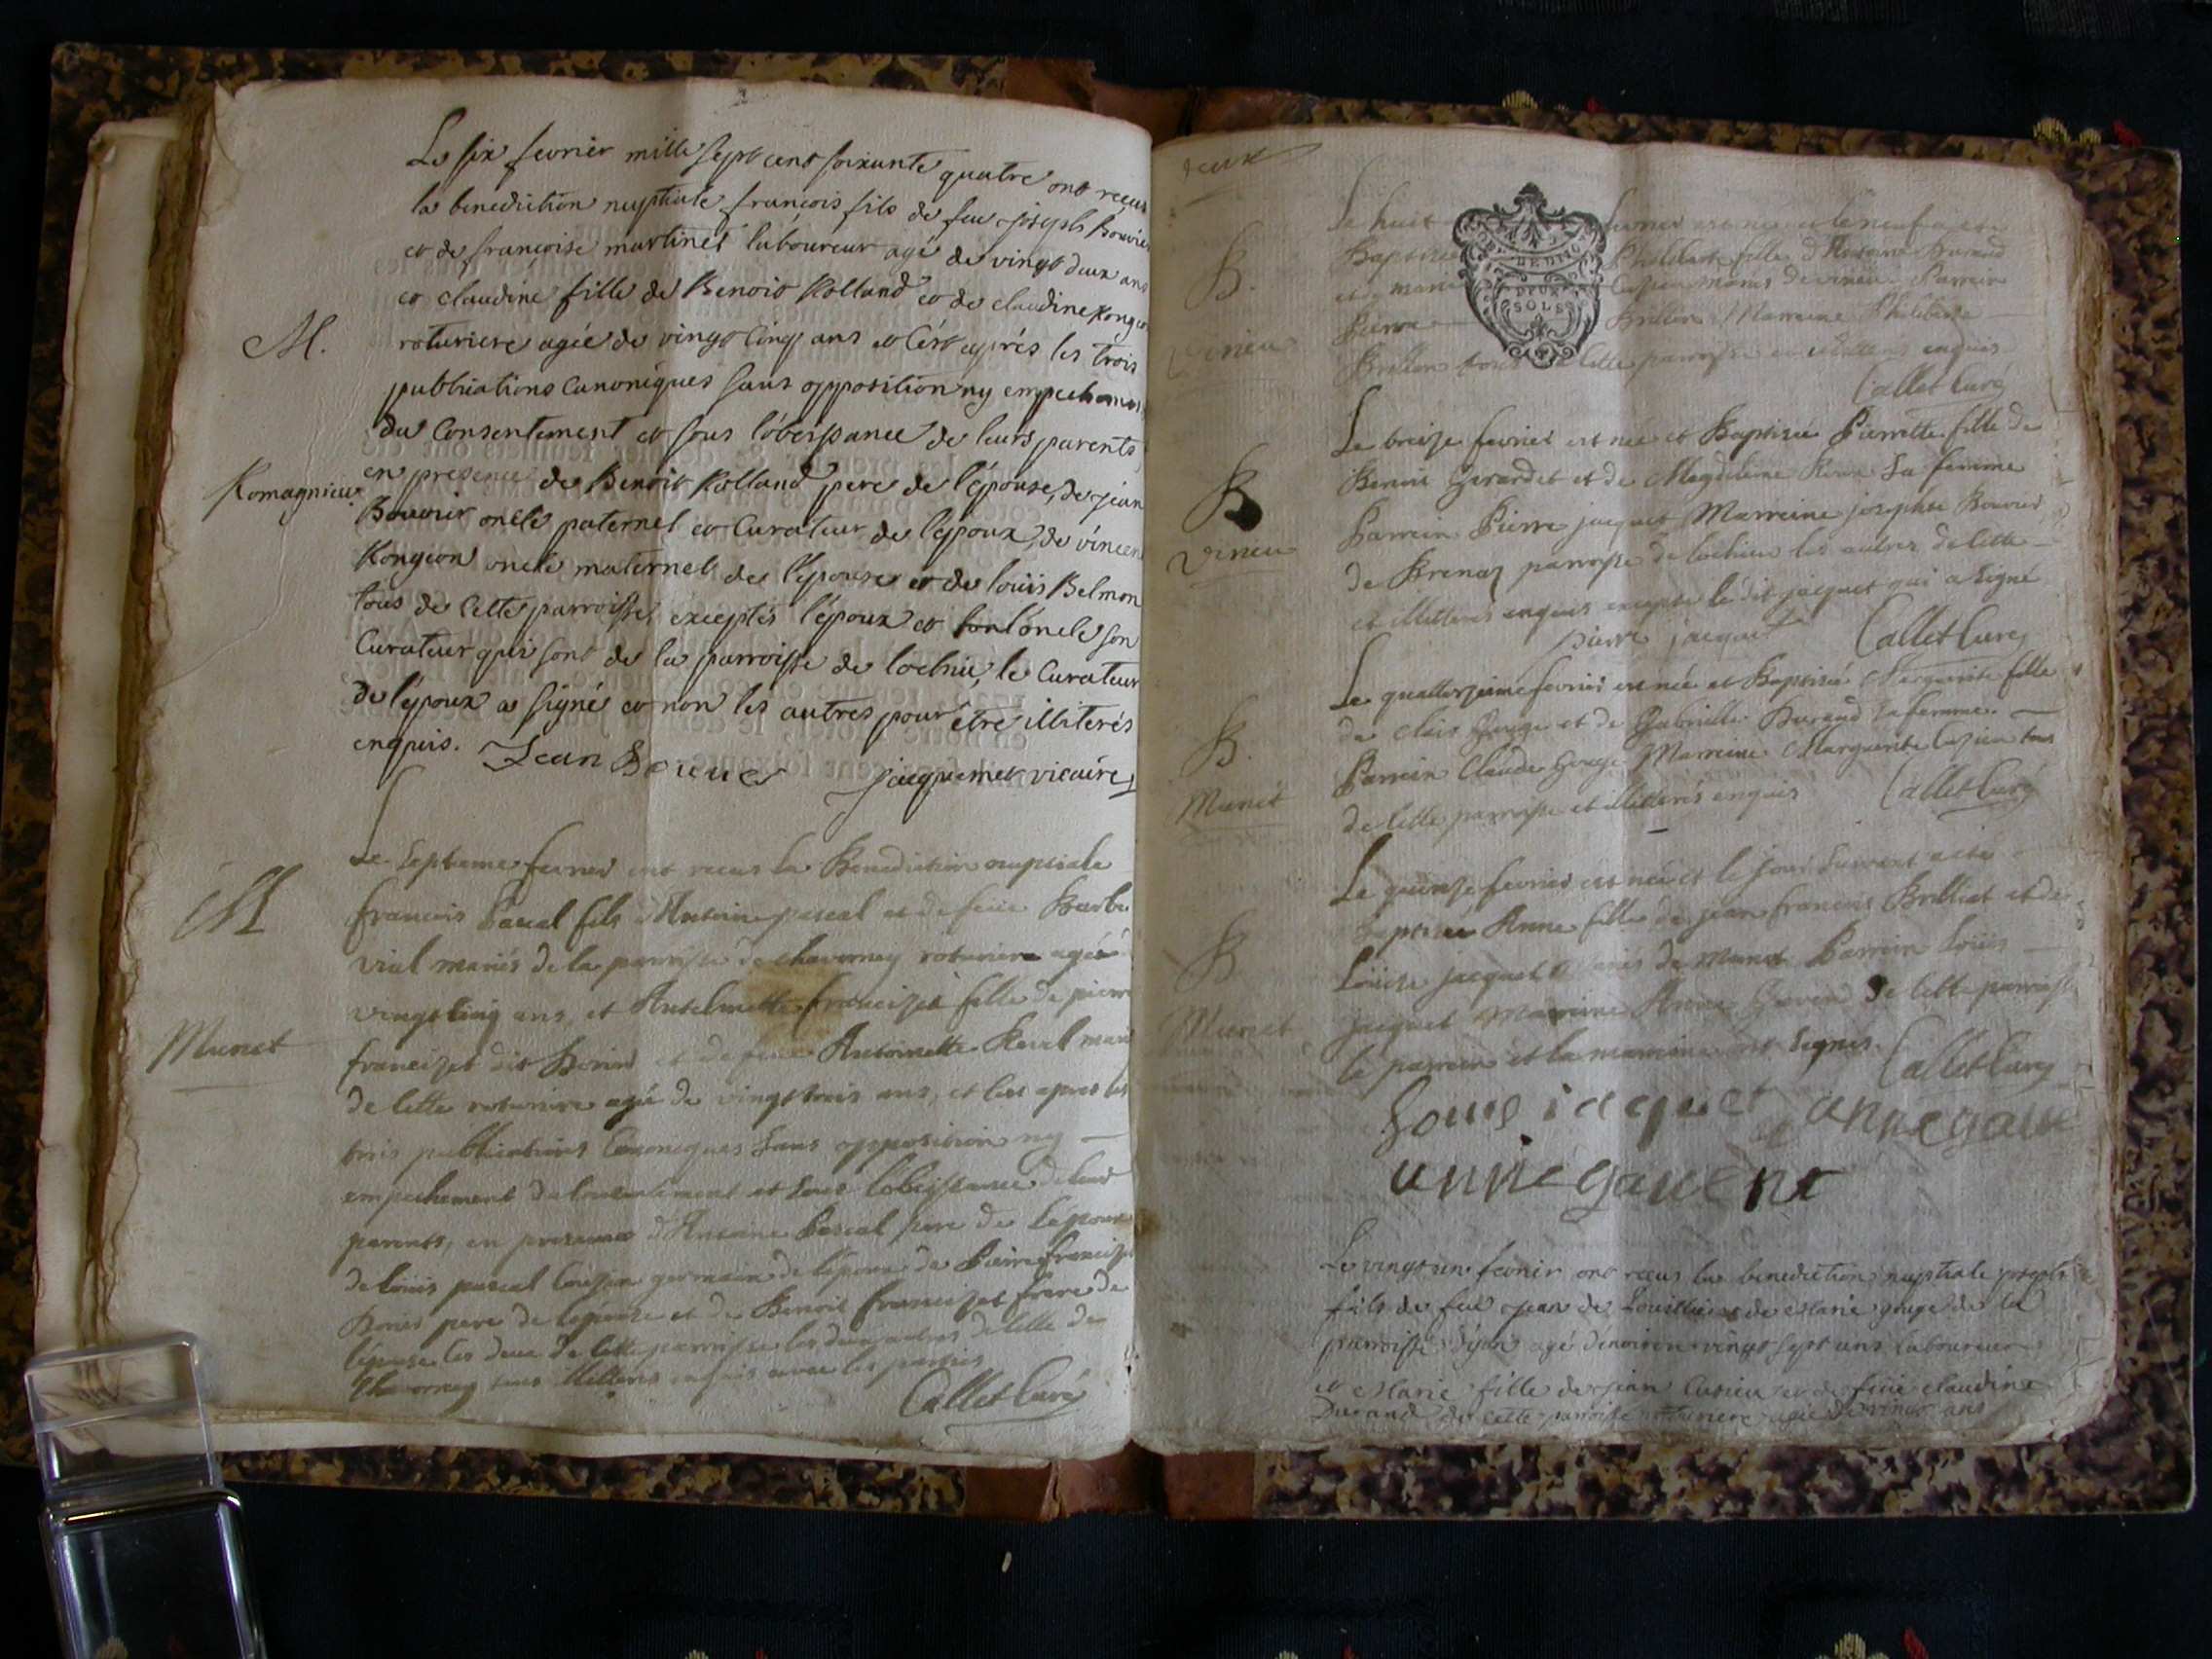 Le six fevrier mille sept cent soixante quatre ont recus
la benediction nuptiale francois fils de feu joseph Bouvier
et de francoise martinet laboureur agé de vingt deux ans
et claudine fille de Benoit Rolland et de claudine Rongeon
M.
roturiere agée de vingt cinq ans et c'est aprés les trois
publications canoniques sans opposition ny empechement
du consentement et sous l'obeissance de leurs parents,
Romagnieu
en presence de Benoit Rolland pere de l'épouse, de jean
Bouvier oncle paternel et curateur de l'époux, de vincent
Rongeon oncle maternel de l'épouse et de loüis Belmon
tous de cette parroisse, exceptés l'époux et son l'oncle son
Curateur qui sont de la parroisse de lochieu, le Curateur
de l'époux a signé et non les autres pour être illiterés
enquis. Jean Bouvier jacquemet vicaire
Le septieme fevrier ont recus la Benediction nuptiale
M
francois Pascal fils d'Antoine pascal et de feüe Barbe
vial mariés de la parroisse de chavorney roturiere agé
vingt cinq ans, et Anthelmette francizet fille de pierre
Munet
francizet dit Boris et de feüe Antoinette
de cette roturiere agée de vingt trois ans, et c'est apres les
trois publications Canoniques Sans opposition ny
empechement du Consentement et sous l'obeissance de leurs
parents, en presence d'Antoine Pascal pere de l'époux
de loüis pascal Cousin germain de l'époux de Pierre francizet
pere de l'épouse et de Benoit francizet frere de
l'épouse les deux de cette parroisse les deux autres de celle de
Chavorney tous illitteres enquis avec les parties
Callet Curé
deux
Le huit fevrier est née et le neuf a été
B.
Baptisée Philiberte fille d'Antoine Durand
et de marie mariés de virieu. Parrein
DEUX SOLS
Pierre Brillon Marreine Philiberte
virieu
Brillon tous de Cette parroisse et illitteres enquis
Callet Curé
Le treize fevrier est née et Baptisée Pierrette fille de
B
Benoit Girardet et de Magdeleine sa femme
Parrein Pierre jacquet Marreine josephte Bouvier
virieu
de Brenaz parroisse de lochieu les autres de cette
et illitteres enquis excepté le dit jacquet qui a signé
pierre jacquet Callet Curé
Le quattorzieme fevrier est née et Baptisée Marguerite fille
B.
de Gouge et de Gabrielle Durand sa femme.
Parrein Claude Gouge Marreine Marguerite tous
Munet
de Cette parroisse et illitterés enquis Callet Curé
Le quinze fevrier est née et le jour Suivant a été
B
Baptisée Anne fille de jean francois Brilliat et de
Loüise jacquet Mariés de Munet Parrein Loüis
Munet
jacquet Marreine Anne Gavend de Cette parroisse
le parrein et la marreine ont signés.
Callet Curé
Louis iacquet anne gave
anne gauent
Le vingt un fevrier ont recus la benediction nuptiale joseph
fils de feu jean de et de Marie gouge de la
parroisse d'yon agé d'environ vingt sept ans laboureur
et Marie fille de jean Cusieu et de feüe claudine
Durand de cette parroisse roturiere agée de vingt ans